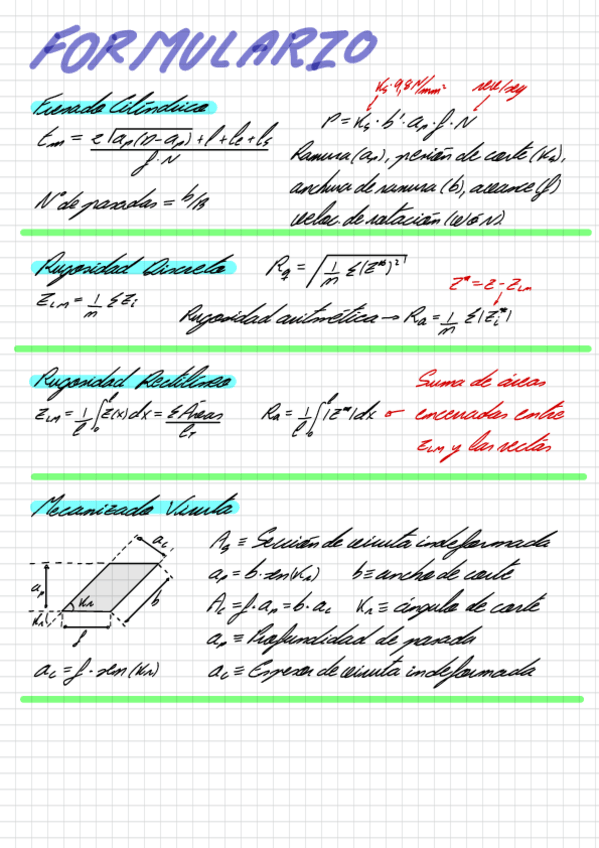 FORMULARIO
Fresado Cilíndrico
Ks·9,8 N/mm² rev/seg
tm = 2√(ap(D-ap)) + l + le + ls / f·N
P = Ks · b' · ap · f · N
Ranura (ap), presión de corte (Ks),
anchura de ranura (b), avance (f)
veloc de rotación (W ó N)
Nº de pasadas = b/B
Rugosidad Discreto
Rq = √(1/m Σ(Z*)²)
Z* = Z - ZLM
ZLM = 1/m ΣZi
Rugosidad aritmética → Ra = 1/m Σ|Zi*|
Rugosidad Rectilíneo
ZLM = 1/l ∫₀ˡ Z(x)dx = ΣÁreas / LT
Ra = 1/l ∫₀ˡ |Z*|dx
Suma de áreas
encerradas entre
ZLM y las rectas
Mecanizado Viruta
ac
ap
Kr
b
Kr
f
ac = f · sen(Kr)
≡ Sección de viruta indeformada
ap = b · sen(Kr) b ≡ ancho de corte
Ac = f · ap = b · ac Kr ≡ ángulo de corte
ap ≡ Profundidad de pasada
ac ≡ Espesor de viruta indeformada